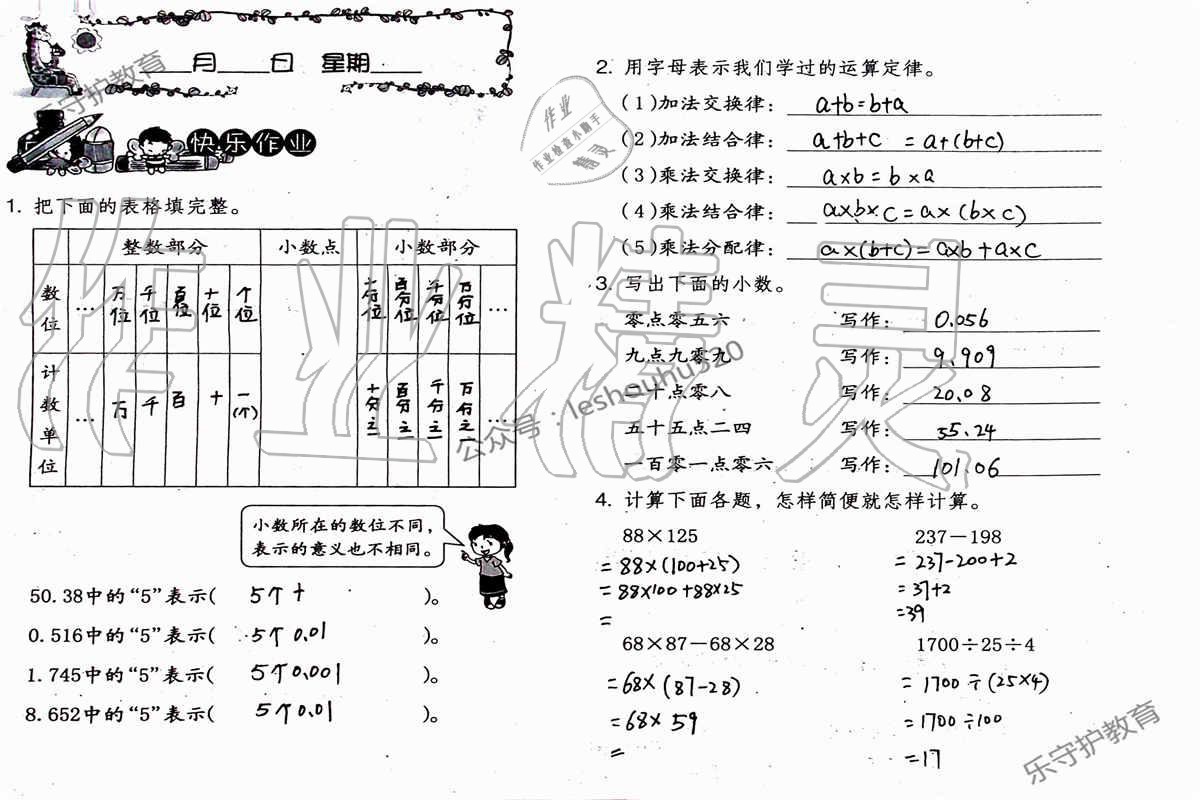 月 日 星期
快乐作业
1. 把下面的表格填完整。
整数部分 小数点 小数部分
数位 … 万位 千位 百位 十位 个位 十分位 百分位 千分位 万分位 …
计数单位 … 万 千 百 十 一(个) 十分之一 百分之一 千分之一 万分之一 …
小数所在的数位不同，
表示的意义也不相同。
50.38中的“5”表示( 5个十 )。
0.516中的“5”表示( 5个0.01 )。
1.745中的“5”表示( 5个0.001 )。
8.652中的“5”表示( 5个0.01 )。
2. 用字母表示我们学过的运算定律。
(1)加法交换律： a+b=b+a
(2)加法结合律： a+b+c = a+(b+c)
(3)乘法交换律： a×b=b×a
(4)乘法结合律： a×b×c=a×(b×c)
(5)乘法分配律： a×(b+c)=a×b+a×c
3. 写出下面的小数。
零点零五六 写作： 0.056
九点九零九 写作： 9.909
二十点零八 写作： 20.08
五十五点二四 写作： 55.24
一百零一点零六 写作： 101.06
4. 计算下面各题，怎样简便就怎样计算。
88×125 237-198
=88×(100+25) =237-200+2
=88×100+88×25 =37+2
= =39
68×87-68×28 1700÷25÷4
=68×(87-28) =1700÷(25×4)
=68×59 =1700÷100
= =17
乐守护教育
作业
作业检查小助手
精灵
作业精灵
公众号：leshouhu320
乐守护教育